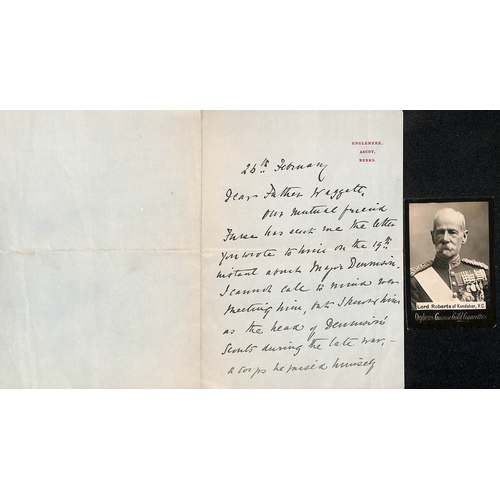 ENGLEMERE,
ASCOT,
BERKS.
26th February
Dear Father Waggett,
Our mutual friend
has sent me the letter
you wrote to him on the 19th
instant about Major Dennison.
I cannot call to mind ever
meeting him, but I know him
as the head of Dennison's
Scouts during the late war, -
a corps he raised himself
Lord Roberts of Kandahar, V.C.
Ogden's Guinea Gold Cigarettes